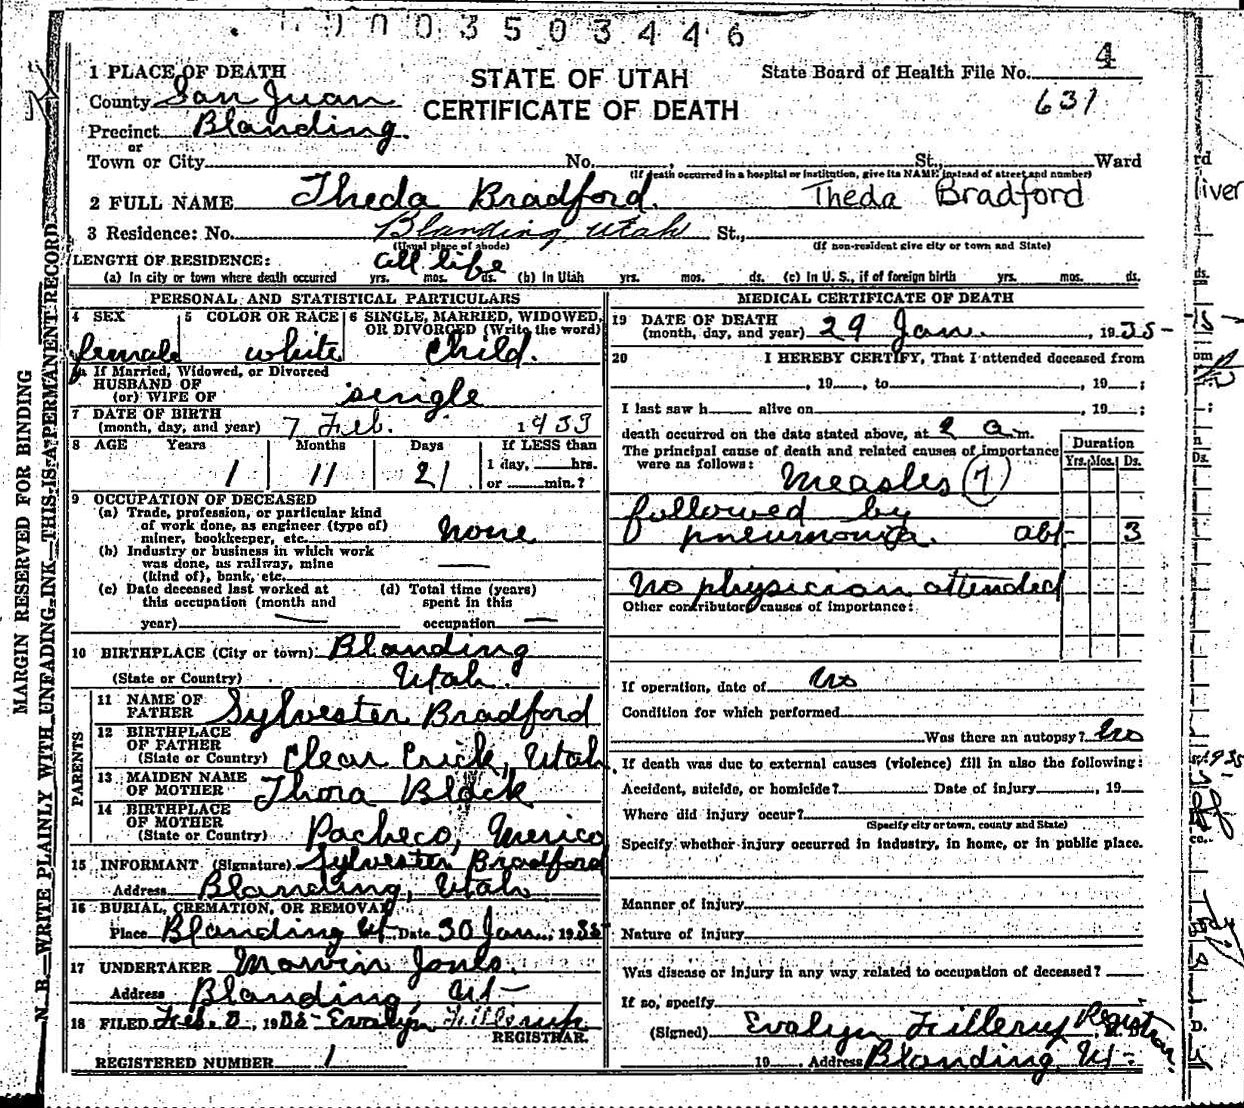 1003503446
1 PLACE OF DEATH
STATE OF UTAH
State Board of Health File No. 4
County San Juan
CERTIFICATE OF DEATH
631
Precinct Blanding.
or
Town or City No. , St., Ward
(If death occurred in a hospital or institution, give its NAME instead of street and number)
2 FULL NAME Theda Bradford. Theda Bradford
3 Residence: No. Blanding Utah St.,
(Usual place of abode) (If non-resident give city or town and State)
LENGTH OF RESIDENCE: all life
(a) In city or town where death occurred yrs. mos. ds. (b) In Utah yrs. mos. ds. (c) In U. S., if of foreign birth yrs. mos. ds.
PERSONAL AND STATISTICAL PARTICULARS
4 SEX 5 COLOR OR RACE 6 SINGLE, MARRIED, WIDOWED,
OR DIVORCED (Write the word)
female white Child.
If Married, Widowed, or Divorced
HUSBAND OF
(or) WIFE OF single
7 DATE OF BIRTH
(month, day, and year) 7 Feb. 1933
8 AGE Years Months Days If LESS than
1 11 21 1 day, hrs.
or min.?
9 OCCUPATION OF DECEASED
(a) Trade, profession, or particular kind
of work done, as engineer (type of)
miner, bookkeeper, etc. none
(b) Industry or business in which work
was done, as railway, mine
(kind of), bank, etc. —
(c) Date deceased last worked at (d) Total time (years)
this occupation (month and spent in this
year) — occupation —
10 BIRTHPLACE (City or town) Blanding
(State or Country) Utah.
PARENTS
11 NAME OF
FATHER Sylvester Bradford
12 BIRTHPLACE
OF FATHER
(State or Country) Clear Crick, Utah
13 MAIDEN NAME
OF MOTHER Thora Black
14 BIRTHPLACE
OF MOTHER
(State or Country) Pacheco, Mexico
15 INFORMANT (Signature) Sylvester Bradford
Address Blanding, Utah
16 BURIAL, CREMATION, OR REMOVAL
Place Blanding Ut- Date 30 Jan., 1935
17 UNDERTAKER Marvin Jones.
Address Blanding, Ut-
18 FILED Feb. , 1935 Evalyn Fillerup
REGISTRAR.
REGISTERED NUMBER 1
MEDICAL CERTIFICATE OF DEATH
19 DATE OF DEATH
(month, day, and year) 29 Jan. 1935-
20 I HEREBY CERTIFY, That I attended deceased from
, 19 , to , 19 ;
I last saw h alive on , 19 ;
death occurred on the date stated above, at 2 a m.
The principal cause of death and related causes of importance
were as follows:
Duration
Yrs. Mos. Ds.
Measles (7)
followed by
pneumonia. abt- 3
No physician attended
Other contributory causes of importance:
If operation, date of no
Condition for which performed
Was there an autopsy? no
If death was due to external causes (violence) fill in also the following:
Accident, suicide, or homicide? Date of injury , 19
Where did injury occur?
(Specify city or town, county and State)
Specify whether injury occurred in industry, in home, or in public place.
Manner of injury
Nature of injury
Was disease or injury in any way related to occupation of deceased?
If so, specify
(Signed) Evalyn Fillerup Registrar.
19 Address Blanding Ut-
MARGIN RESERVED FOR BINDING
N. B.—WRITE PLAINLY WITH UNFADING INK—THIS IS A PERMANENT RECORD
rd
liver
ds.
om
Ds.
1935-